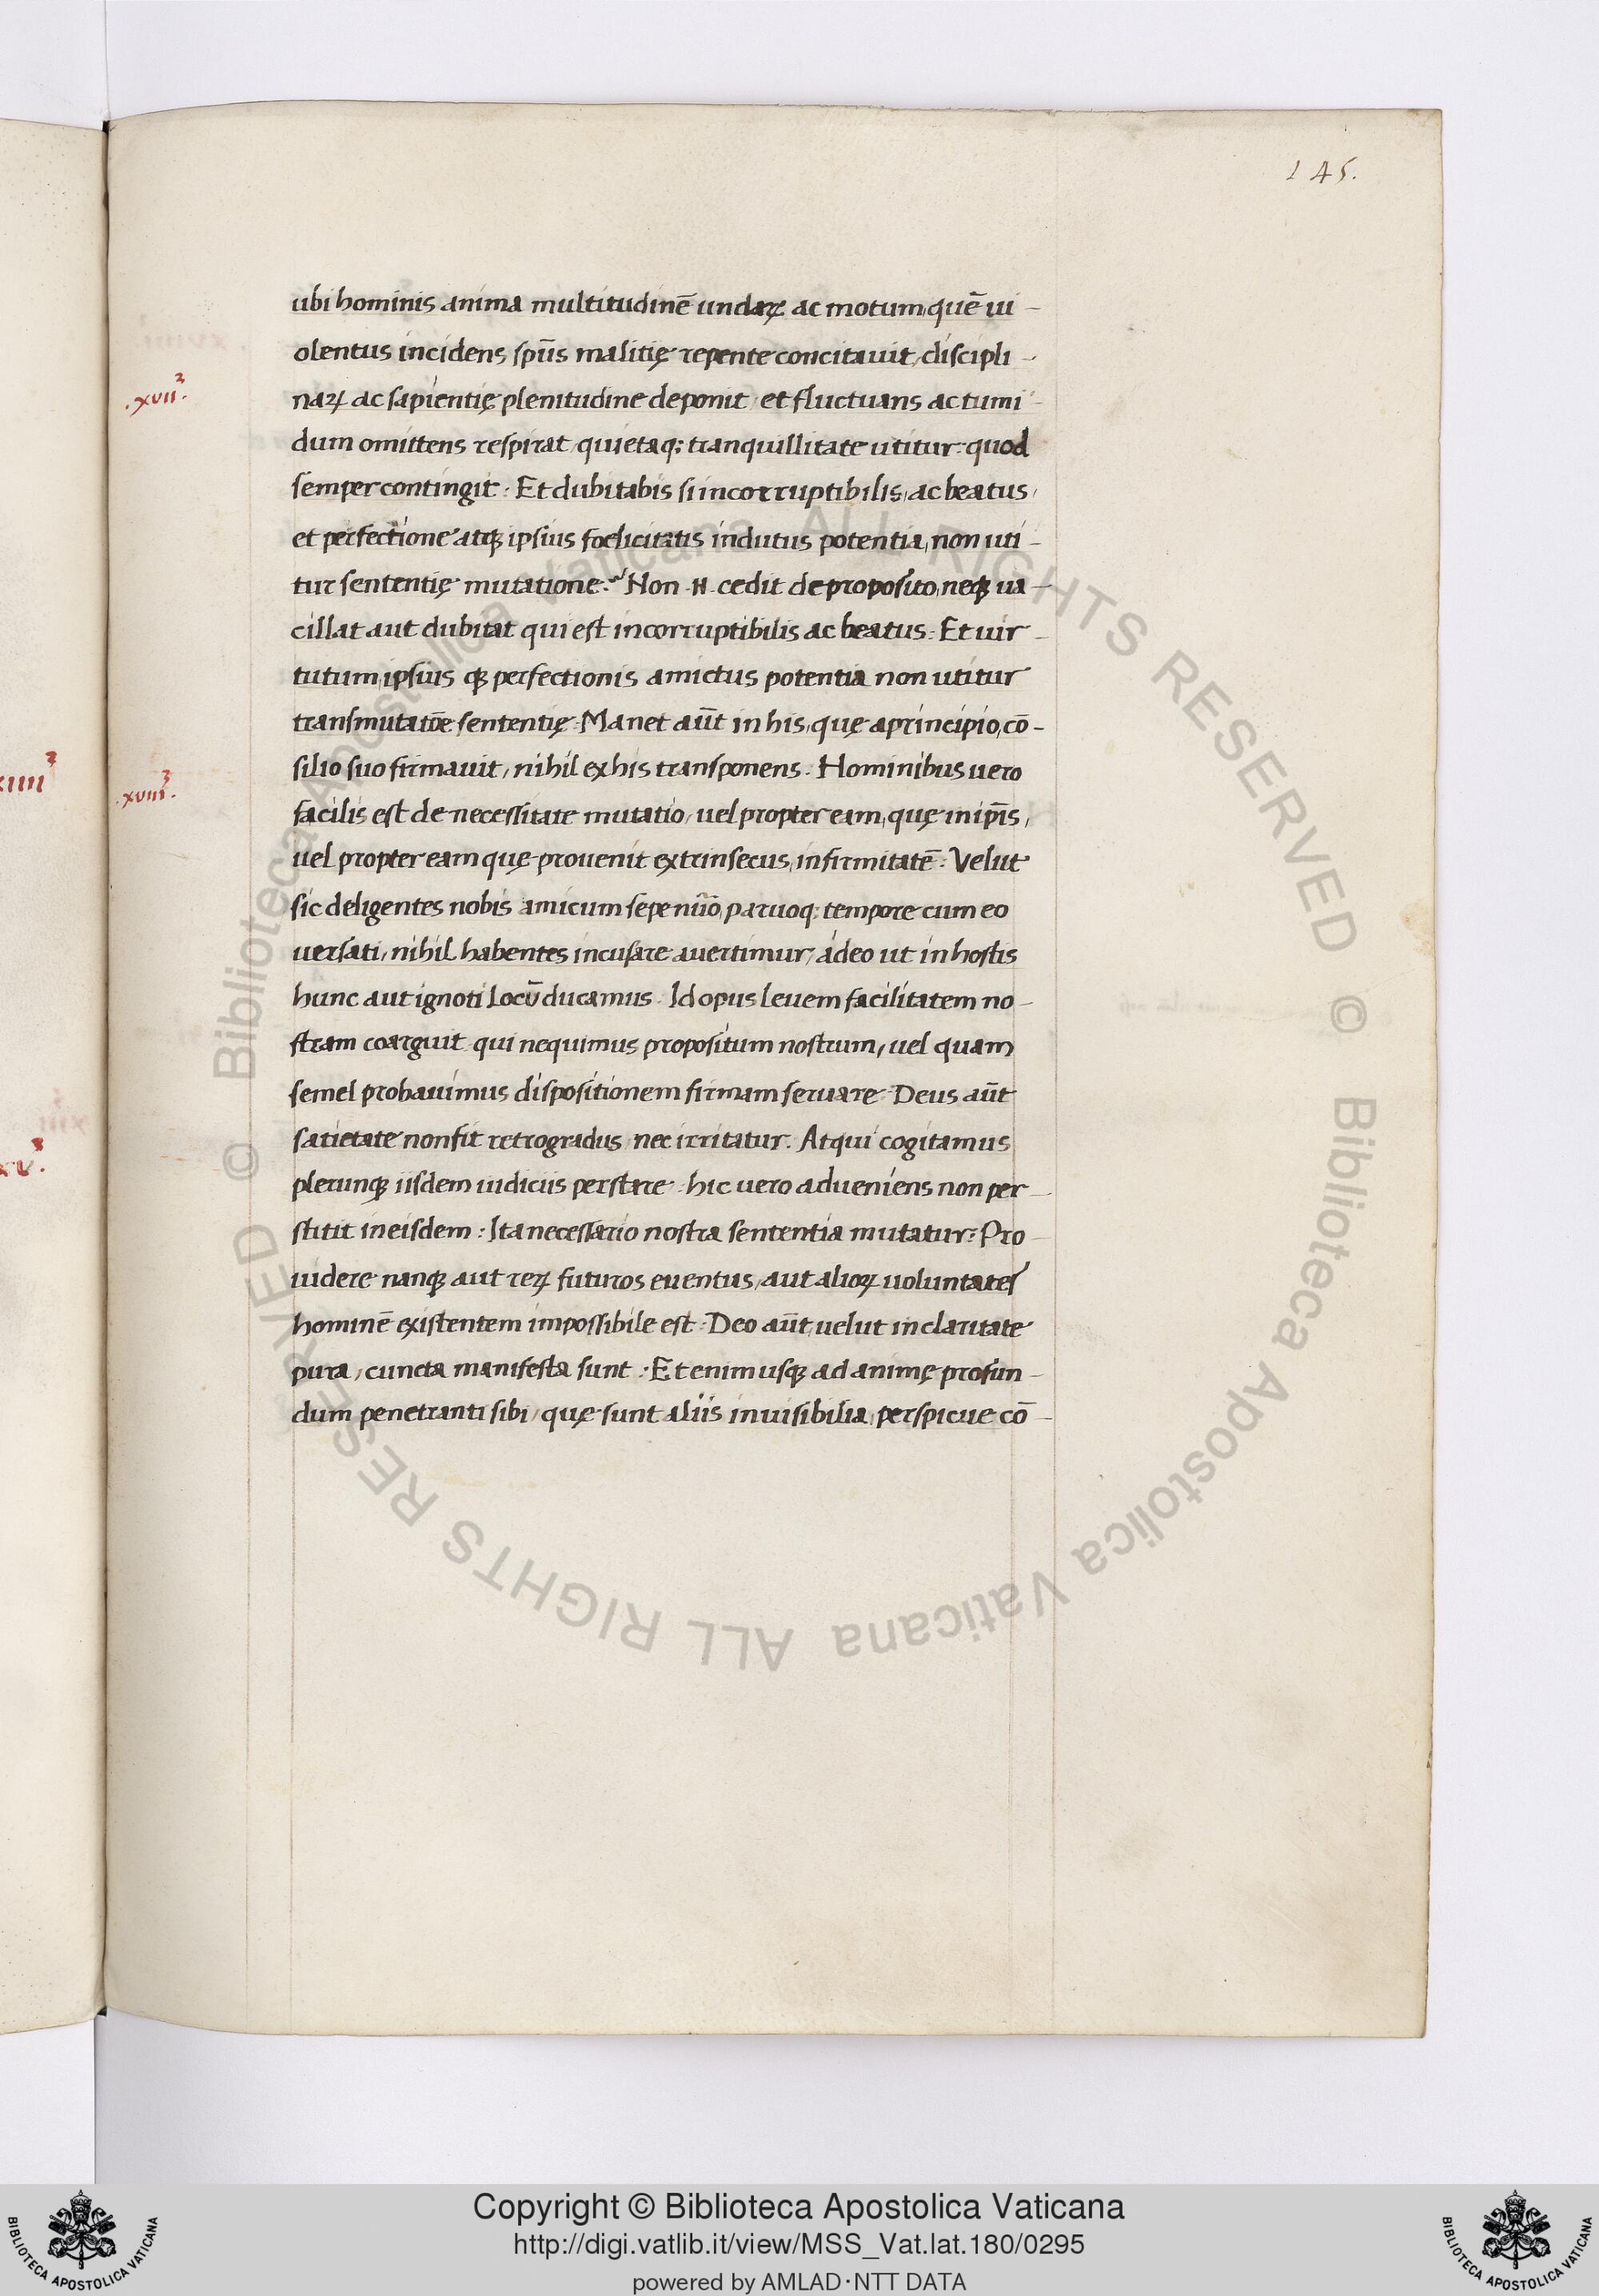 145.
ubi hominis anima multitudinē undaꝝ ac motum, quē ui-
olentus incidens spūs malitię repente concitauit, discipli-
.xvii.ᵃ
naꝝ ac sapientię plenitudine deponit, et fluctuans ac tumi-
dum omittens respirat, quietaq; tranquillitate utitur: quod
semper contingit: Et dubitabis si incorruptibilis, ac beatus,
et perfectione atqꝫ ipsius foelicitatis indutus potentia, non uti-
tur sententię mutatione? Non .n. cedit de proposito, neqꝫ ua-
cillat aut dubitat qui est incorruptibilis ac beatus: Et uir-
tutum, ipsius qꝫ perfectionis amictus potentia non utitur
transmutatiōe sententię. Manet aūt in his, quę a principio, cō-
silio suo firmauit, nihil ex his transponens. Hominibus uero
.xviii.ᵃ
facilis est de necessitate mutatio, uel propter eam, quę in ipīs,
uel propter eam quę prouenit extrinsecus, infirmitatē: Velut
sic deligentes nobis amicum sepe nūo, paruoq; tempore cum eo
uersati, nihil habentes incusare auertimur, adeo ut in hostis
hunc aut ignoti locū ducamus. Id opus leuem facilitatem no-
stram coarguit qui nequimus propositum nostrum, uel quam
semel probauimus dispositionem firmam seruare. Deus aūt
satietate non fit retrogradus, nec irritatur. Atqui cogitamus
plerunqꝫ iisdem iudiciis perstare: hic uero adueniens non per-
stitit in eisdem: Ita necessario nostra sententia mutatur: Pro-
uidere nanqꝫ aut reꝝ futuros euentus, aut alioꝝ uoluntates
hominē existentem impossibile est: Deo aūt, uelut in claritate
pura, cuncta manifesta sunt: Etenim usqꝫ ad animę profun-
dum penetranti sibi, quę sunt aliis inuisibilia, perspicue cō-
Copyright © Biblioteca Apostolica Vaticana
http://digi.vatlib.it/view/MSS_Vat.lat.180/0295
powered by AMLAD·NTT DATA